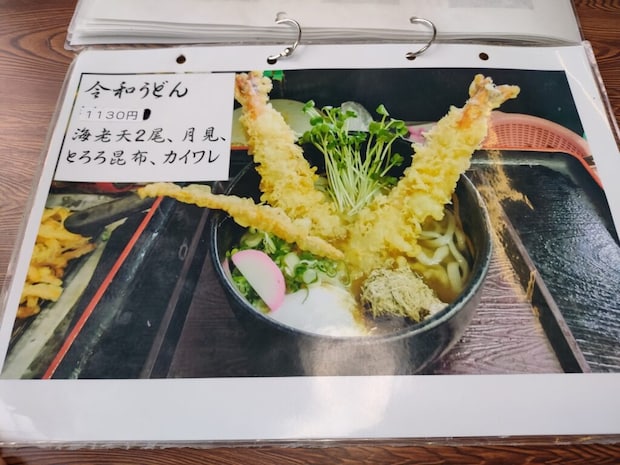 令和うどん
1130円
海老天2尾、月見、
とろろ昆布、カイワレ